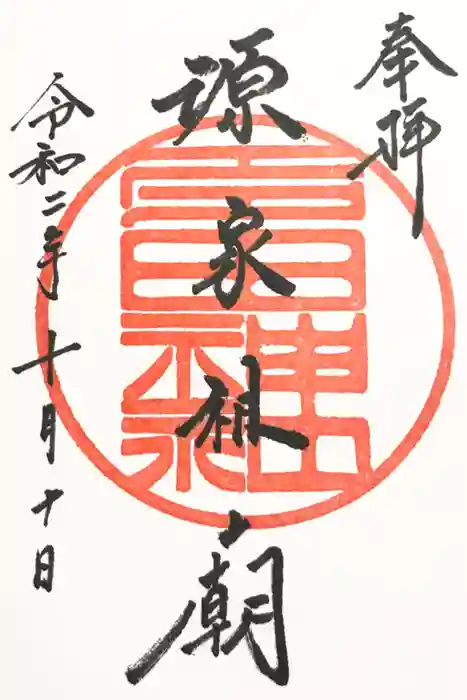 奉拝
源家祖廟
令和二年十月十日